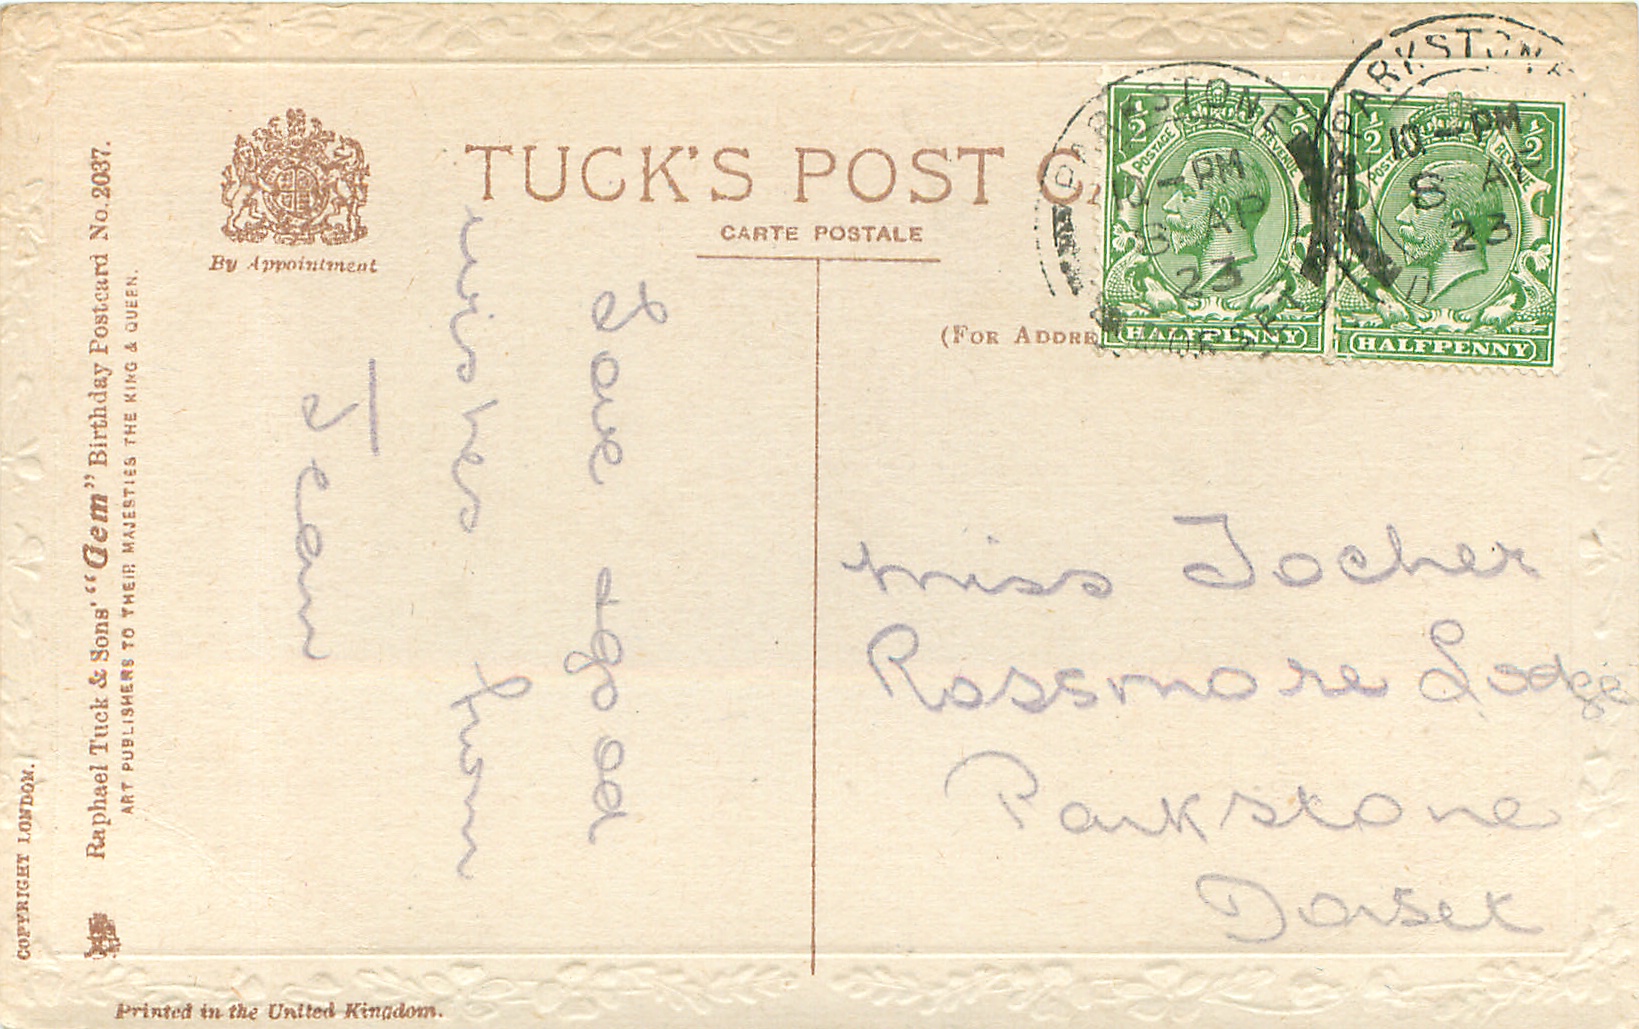 TUCK'S POST
CARTE POSTALE
By Appointment
(FOR ADDRE
Raphael Tuck & Sons' "Gem" Birthday Postcard No. 2037.
ART PUBLISHERS TO THEIR MAJESTIES THE KING & QUEEN.
COPYRIGHT LONDON.
Printed in the United Kingdom.
PARKSTONE
10 - PM
8 AP
23
DORSET
½ ½
POSTAGE REVENUE
HALFPENNY
PARKSTONE
10 - PM
8 A
23
½ ½
HALFPENNY
good
wishes from
Jean
Miss Tocher
Rossmore Lodge
Parkstone
Dorset